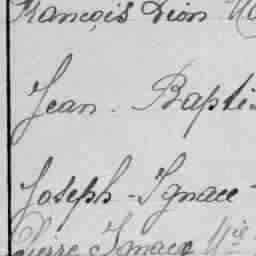 François Dion
Jean. Baptis
Joseph - Ignace -
Pierre Ignace